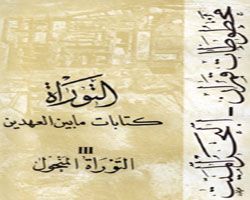 مخطوطات قمران - البحر الميت
التوراة
كتابات ما بين العهدين
III
التوراة المنحول